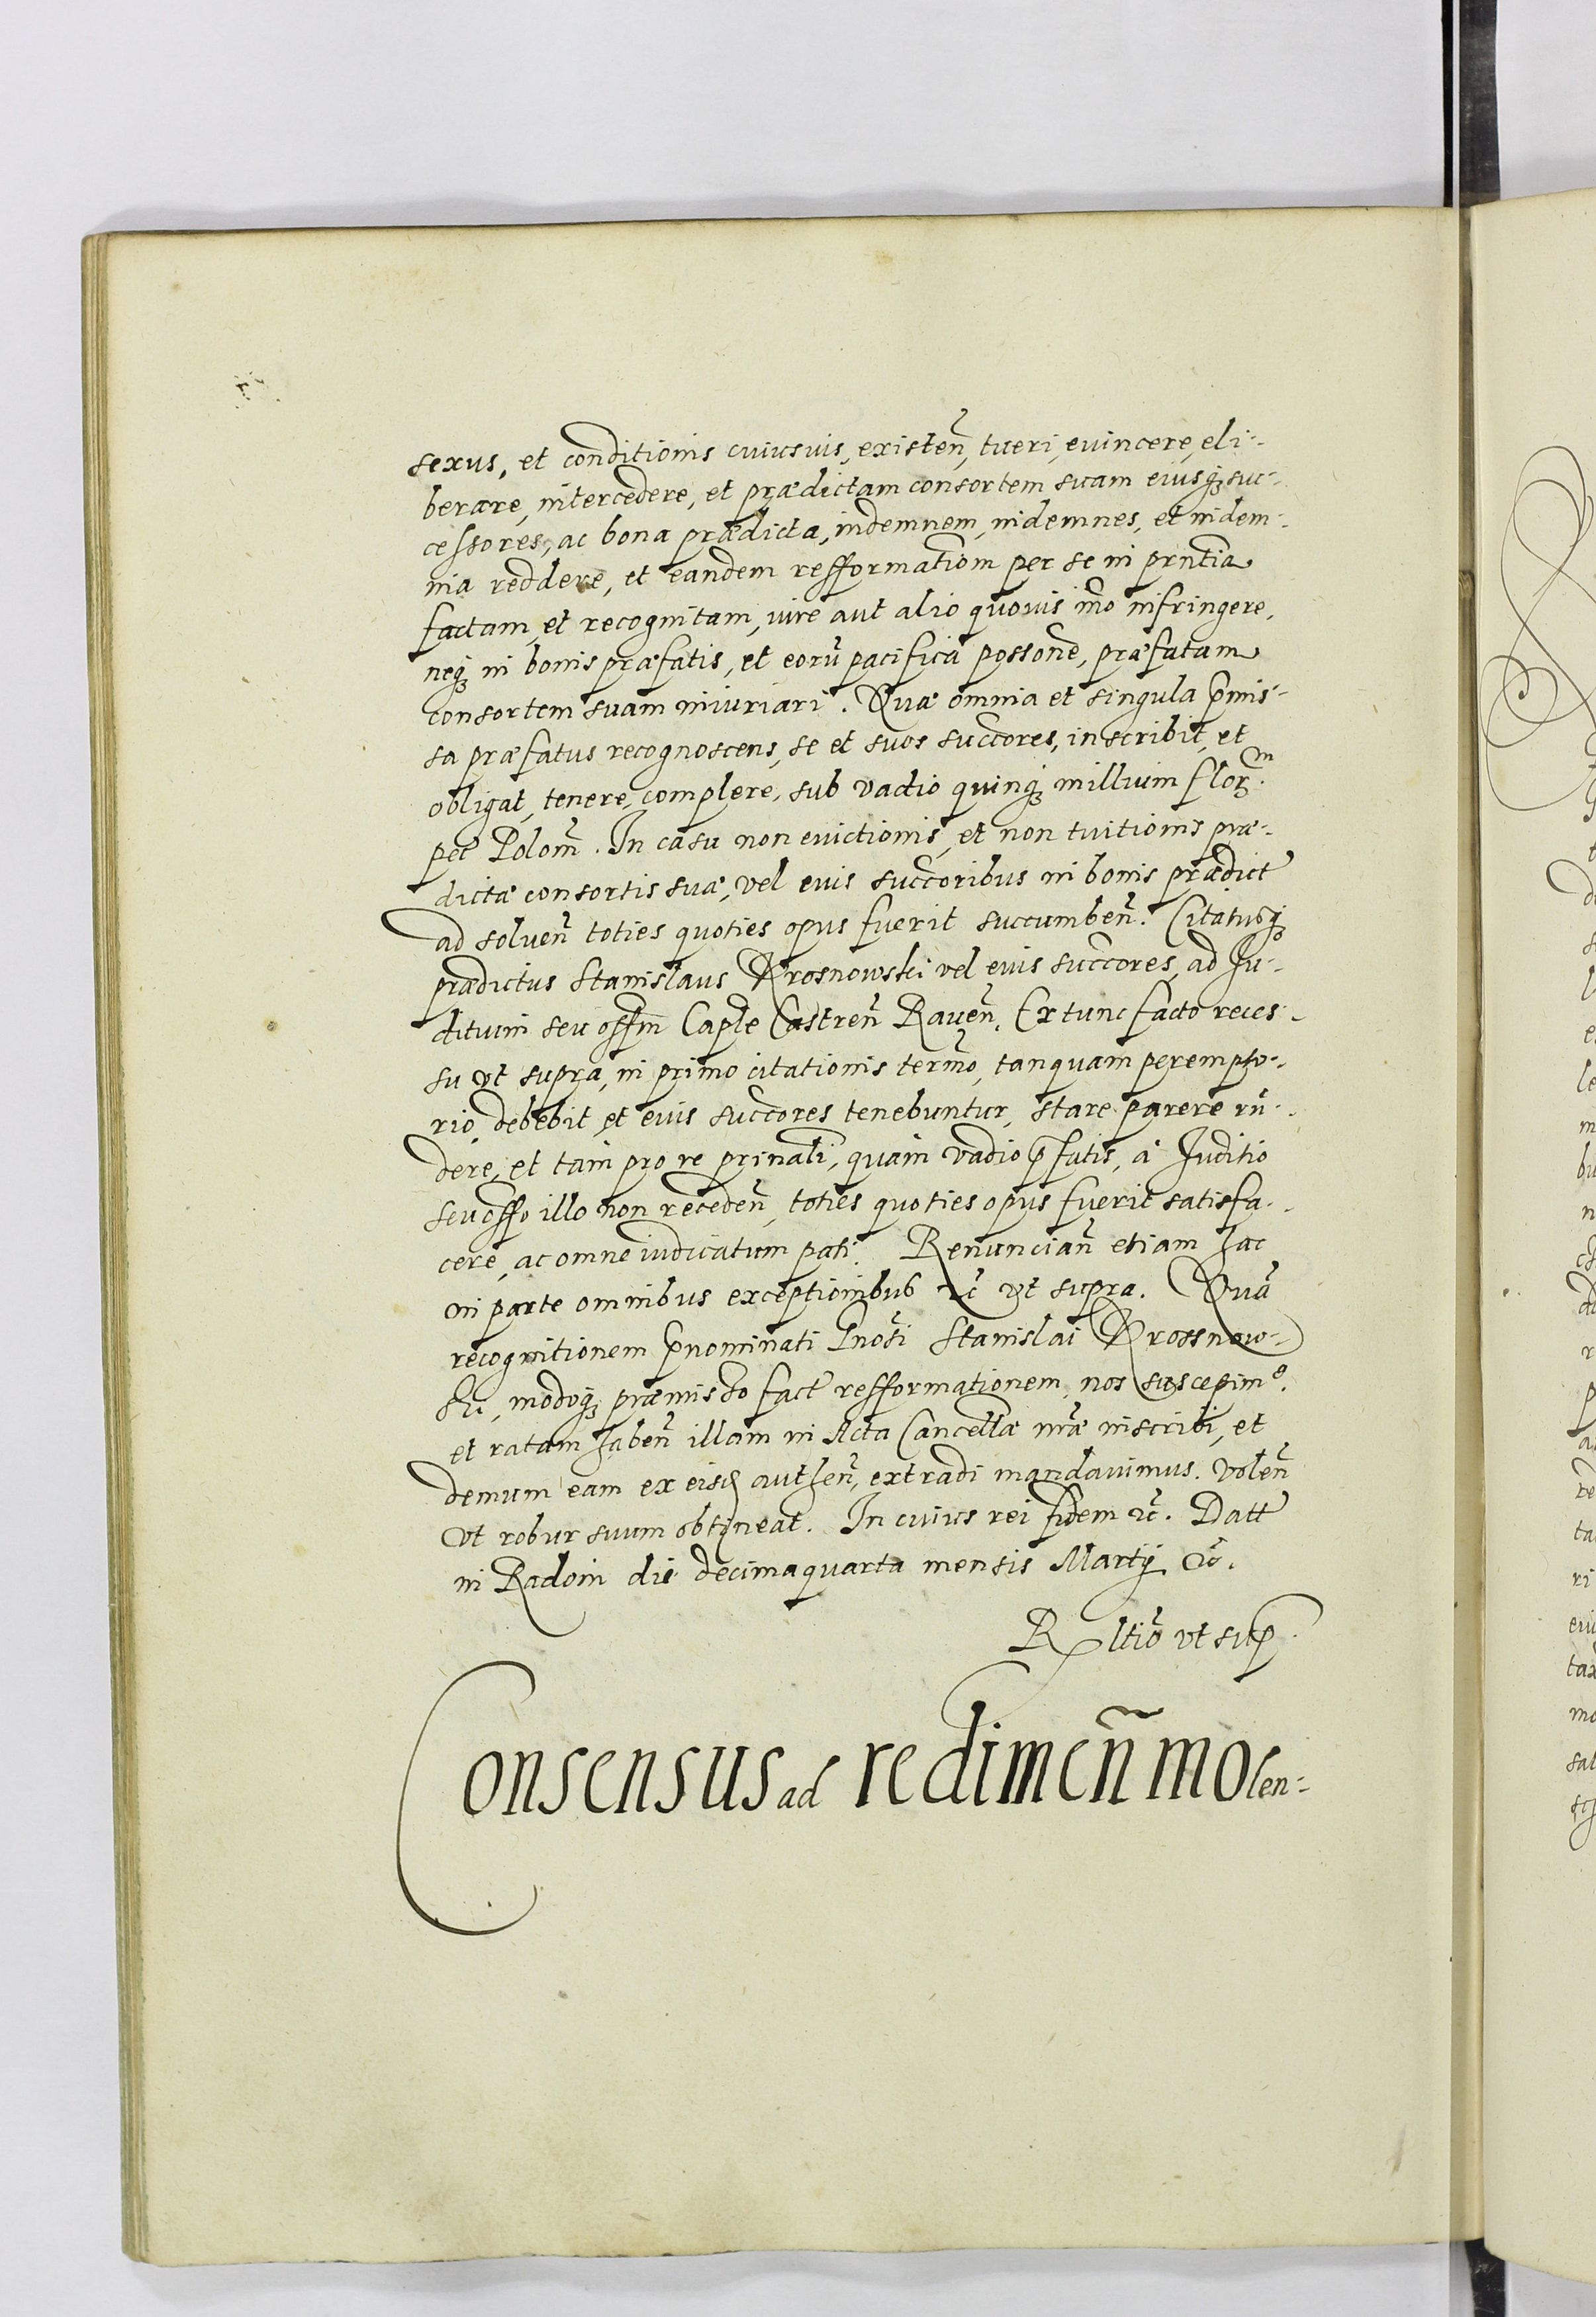 sexus, et conditionis cuiusuis, existeñ, tueri, euincere, eli-
berare, intercedere, et prædictam consortem suam eiusq́ suc-
cessores, ac bona prædicta, indemnem, indemnes, et indem-
nia reddere, et eandem refformatiom̃ per se in prñtia
factam, et recognitam, iure aut alio quouis mõ infringere,
neq́ in bonis præfatis, et eorũ pacifica possone, præfatam
consortem suam iniuriari. Quæ omnia et singula p̃mis-
sa præfatus recognoscens, se et suos succõres, inscribit, et
obligat, tenere, complere, sub vadio quinq́ millium flor̃.
pec̃ Polom̃. In casu non euictionis, et non tuitionis præ-
dictæ consortis suæ, vel eius succõribus in bonis prædict̃
ad solueñ toties quoties opus fuerit succumbeñ. Citatusq́
prædictus Stanislaus Drosnowski vel eius succõres, ad Ju-
ditium seu offm̃ Caple Castreñ Raueñ. Extunc facto reces-
su vt supra, in primo citationis termõ, tanquam perempto-
rio, debebit, et eius succõres tenebuntur, stare parere rñ-
dere, et tam pro re prinali, quam vadio p̃fatis, a Juditio
seu offo illo non recedeñ, toties quoties opus fuerit satisfa-
cere, ac omne iudicatum pati. Renunciañ etiam hac
in parte omnibus exceptionibus ec̃ vt supra. Quã
recognitionem p̃nominati Gnosi Stanislai Drossnow-
ski, modoq́ præmisso fact̃ refformationem, nos suscepim9.
et ratam habeñ illam in Acta Cancellæ nr̃æ inscribi, et
demum eam ex eisd autheñ, extradi mandauimus. Voleñ
vt robur suum obtineat. In cuius rei fidem ec̃. Datt̃
in Radom die decimaquarta mensis Martij ec̃.
Rltiõ vt sup
Consensus ad redimeñ molen-